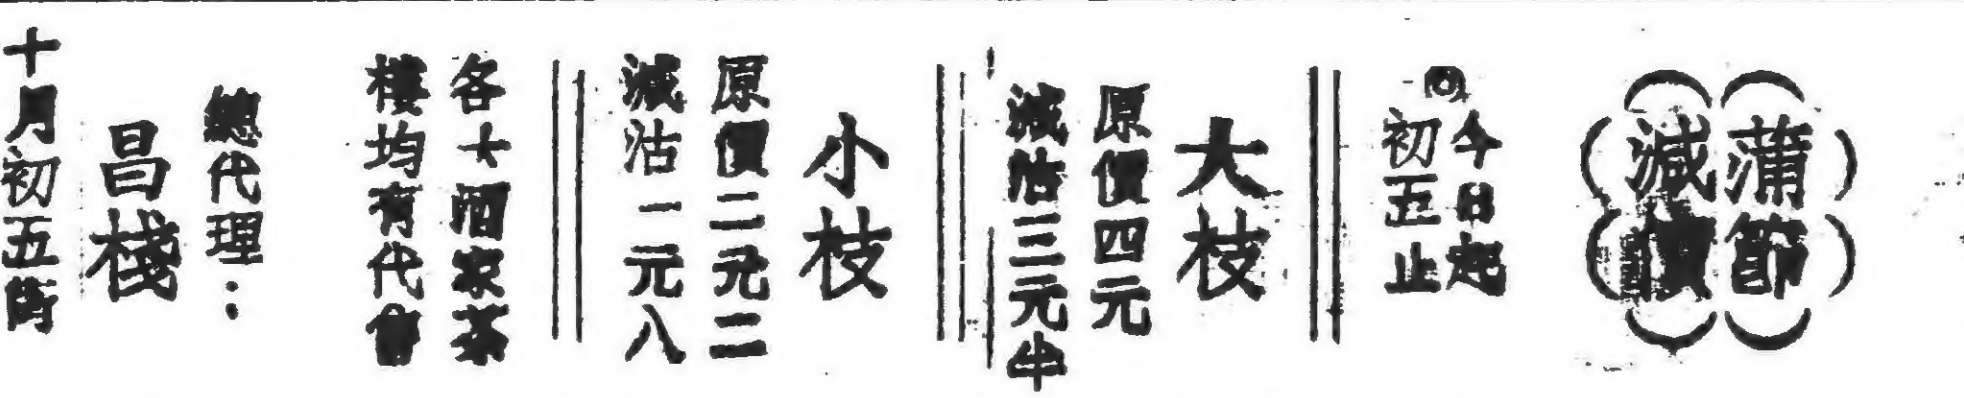 蒲節
減價
今日起
初五止
大枝
原價四元
減沽三元半
小枝
原價二元二
減沽一元八
各大酒家茶
樓均有代售
總代理：
昌棧
十月初五街